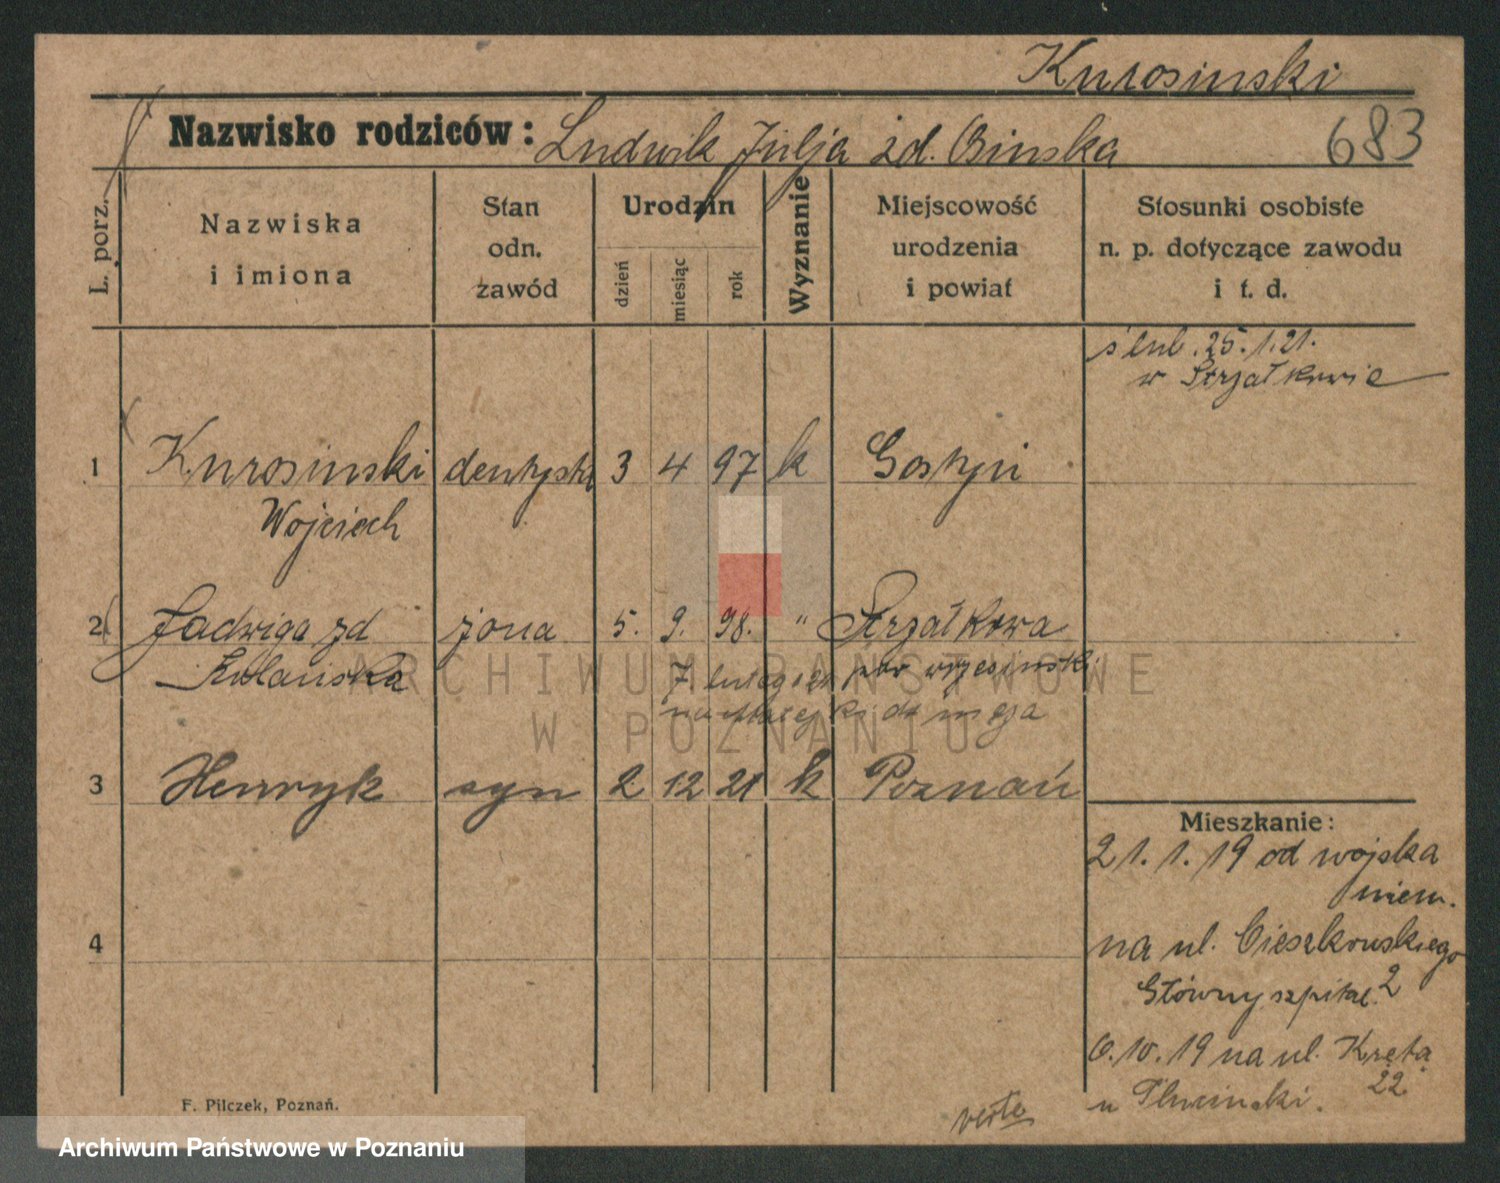 Kurosinski
Nazwisko rodziców: Ludwik Julja zd. Osinska 683
L. porz.
Nazwiska i imiona
Stan odn. zawód
Urodzin
dzień miesiąc rok
Wyznanie
Miejscowość urodzenia i powiat
Stosunki osobiste n. p. dotyczące zawodu i t. d.
ślub. 25.1.21.
w Strzałkowie
1 Kurosinski dentysta 3 4 97 k Gostyń
Wojciech
2 Jadwiga zd żona 5. 9. 98. " Strzałkowa
7. lutego 21 pow wrzesiński
do męża
3 Henryk syn 2. 12 21 k Poznań
Mieszkanie:
21.1.19 od wojska
niem.
4
na ul. Cieszkowskiego
Główny szpital. 2
6.10.19 na ul. Kręta
22
u
verte
F. Pilczek, Poznań.
ARCHIWUM PAŃSTWOWE
W POZNANIU
Archiwum Państwowe w Poznaniu